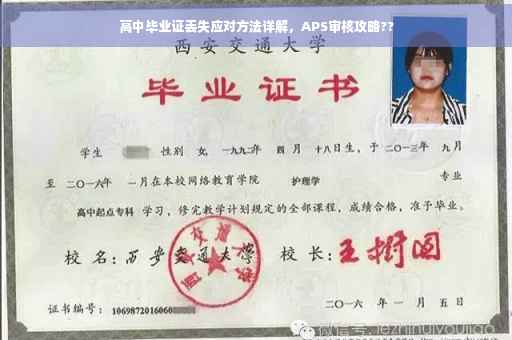 高中毕业证丢失应对方法详解，APS审核攻略??
西安交通大学
毕业证书
学生 性别 女，一九九二年 四 月 十八日生，于 二〇一三年 九月
至 二〇一六年 一月在本校网络教育学院 护理学 专业
高中起点专科 学习，修完教学计划规定的全部课程，成绩合格，准予毕业。
校 名：西安交通大学 校 长：王树国
西安交通大学
证书编号：1069872016060
二〇一六 年 一 月 五 日
微信号: jezhinuiyoujiao